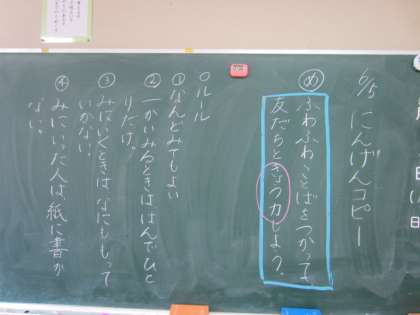 6/5 にんげんコピー
め
ふわふわことばをつかって
友だちときょう力しよう。
○ルール
①なんどみてもよい
②一かいみるときははんでひと
りだけ。
③みにいくときはなにももって
いかない。
④みにいった人は紙に書か
ない。